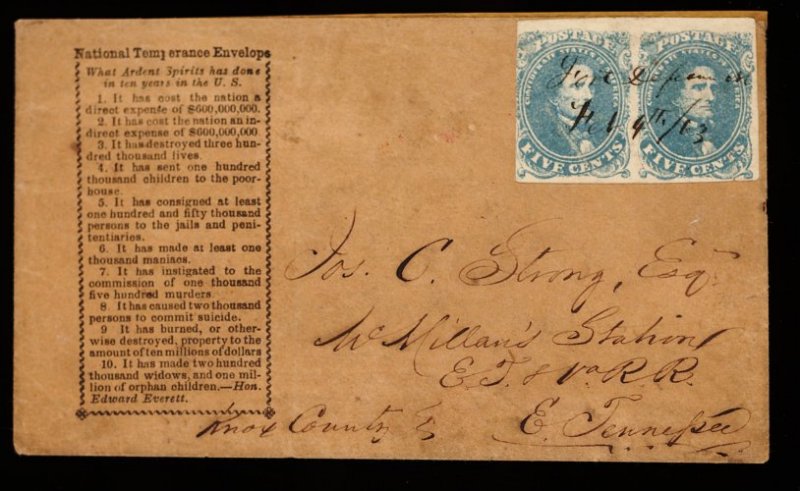 National Temperance Envelope
What Ardent Spirits has done
in ten years in the U. S.
1. It has cost the nation a
direct expense of $600,000,000.
2. It has cost the nation an in-
direct expense of $600,000,000
3. It has destroyed three hun-
dred thousand lives.
4. It has sent one hundred
thousand children to the poor-
house.
5. It has consigned at least
one hundred and fifty thousand
persons to the jails and peni-
tentiaries.
6. It has made at least one
thousand maniacs.
7. It has instigated to the
commission of one thousand
five hundred murders.
8. It has caused two thousand
persons to commit suicide.
9 It has burned, or other-
wise destroyed, property to the
amount of ten millions of dollars
10. It has made two hundred
thousand widows, and one mil-
lion of orphan children.—Hon.
Edward Everett.
POSTAGE
CONFEDERATE STATES OF AMERICA
FIVE CENTS
POSTAGE
CONFEDERATE STATES OF AMERICA
FIVE CENTS
Feb 4th/63
Jos. C. Strong, Esq
McMillan's Station
E. T. & Va R.R.
Knox County
E. Tennessee